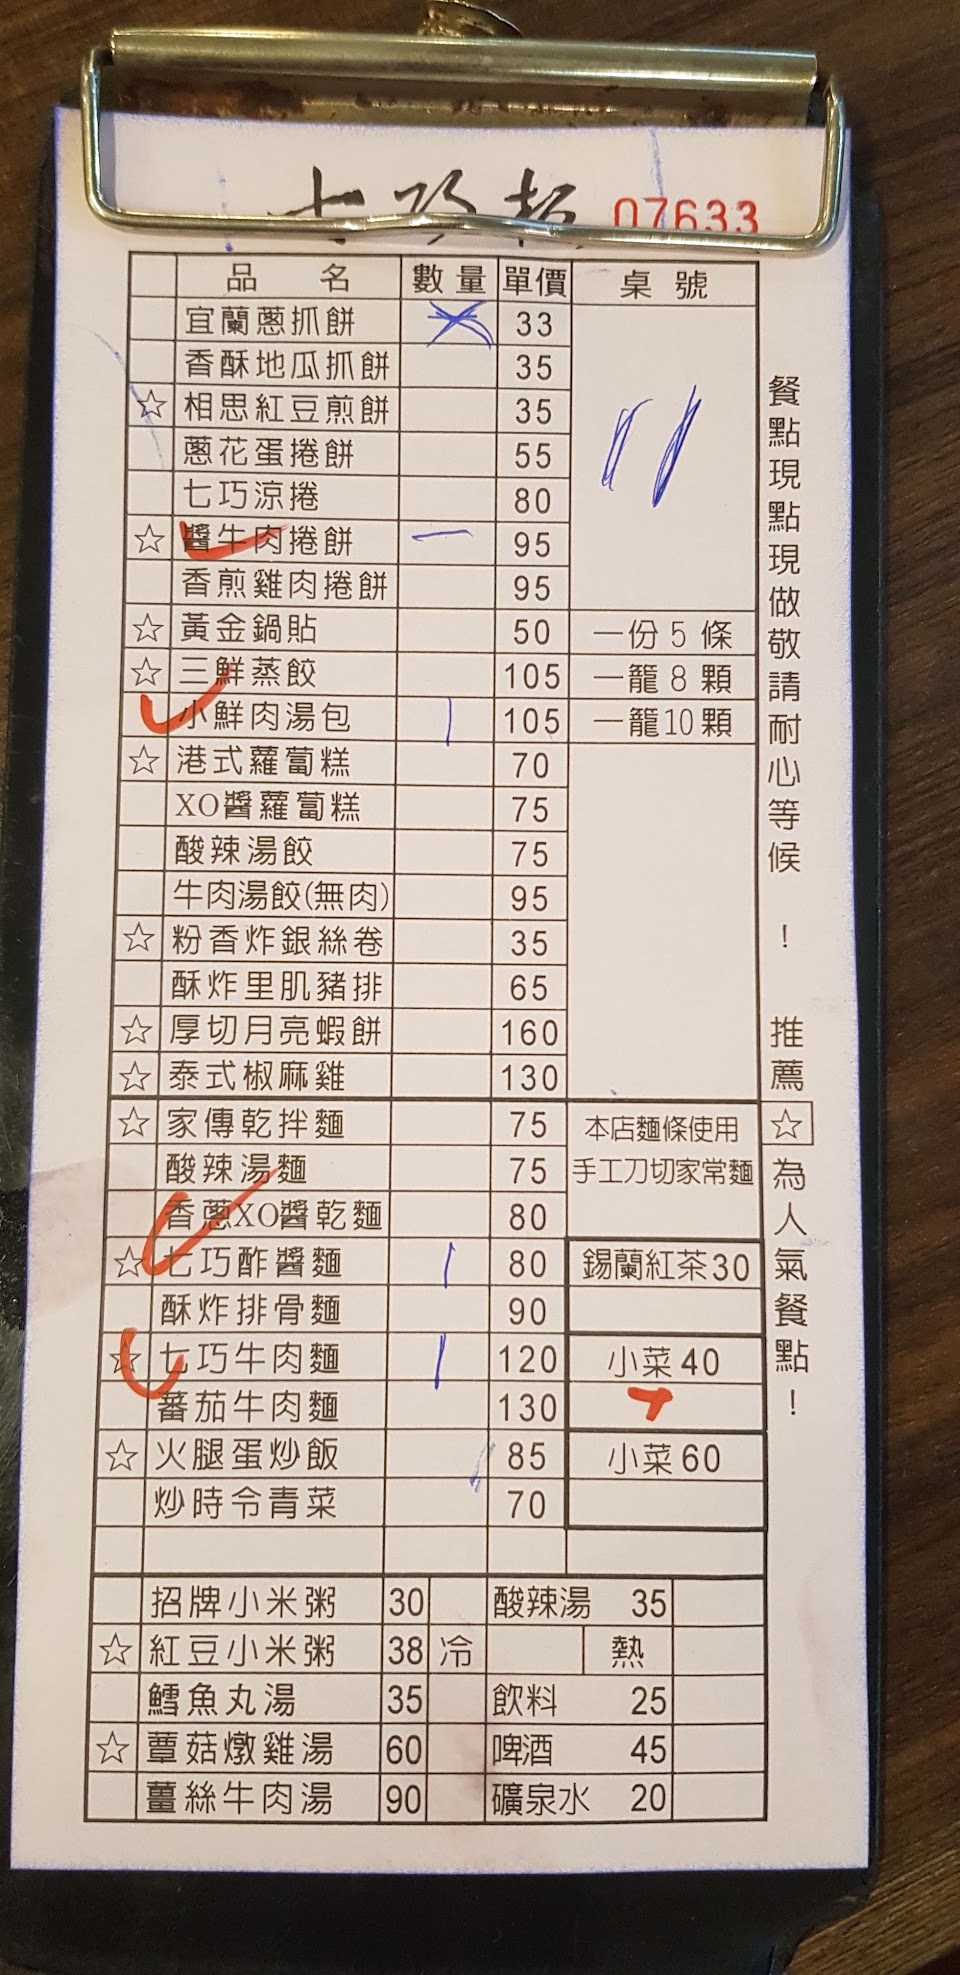 07633
品 名 數量 單價 桌號
宜蘭蔥抓餅 33
香酥地瓜抓餅 35
☆ 相思紅豆煎餅 35
11
蔥花蛋捲餅 55
七巧涼捲 80
☆ 醬牛肉捲餅 一 95
香煎雞肉捲餅 95
☆ 黃金鍋貼 50 一份5條
☆ 三鮮蒸餃 105 一籠8顆
小鮮肉湯包 1 105 一籠10顆
☆ 港式蘿蔔糕 70
XO醬蘿蔔糕 75
酸辣湯餃 75
牛肉湯餃(無肉) 95
☆ 粉香炸銀絲卷 35
酥炸里肌豬排 65
☆ 厚切月亮蝦餅 160
☆ 泰式椒麻雞 130
☆ 家傳乾拌麵 75 本店麵條使用
酸辣湯麵 75 手工刀切家常麵
香蔥XO醬乾麵 80
☆ 七巧酢醬麵 1 80 錫蘭紅茶30
酥炸排骨麵 90
☆ 七巧牛肉麵 1 120 小菜40
蕃茄牛肉麵 130
☆ 火腿蛋炒飯 85 小菜60
炒時令青菜 70
招牌小米粥 30 酸辣湯 35
☆ 紅豆小米粥 38 冷 熱
鱈魚丸湯 35 飲料 25
☆ 蕈菇燉雞湯 60 啤酒 45
薑絲牛肉湯 90 礦泉水 20
餐點現點現做敬請耐心等候！ 推薦☆為人氣餐點！